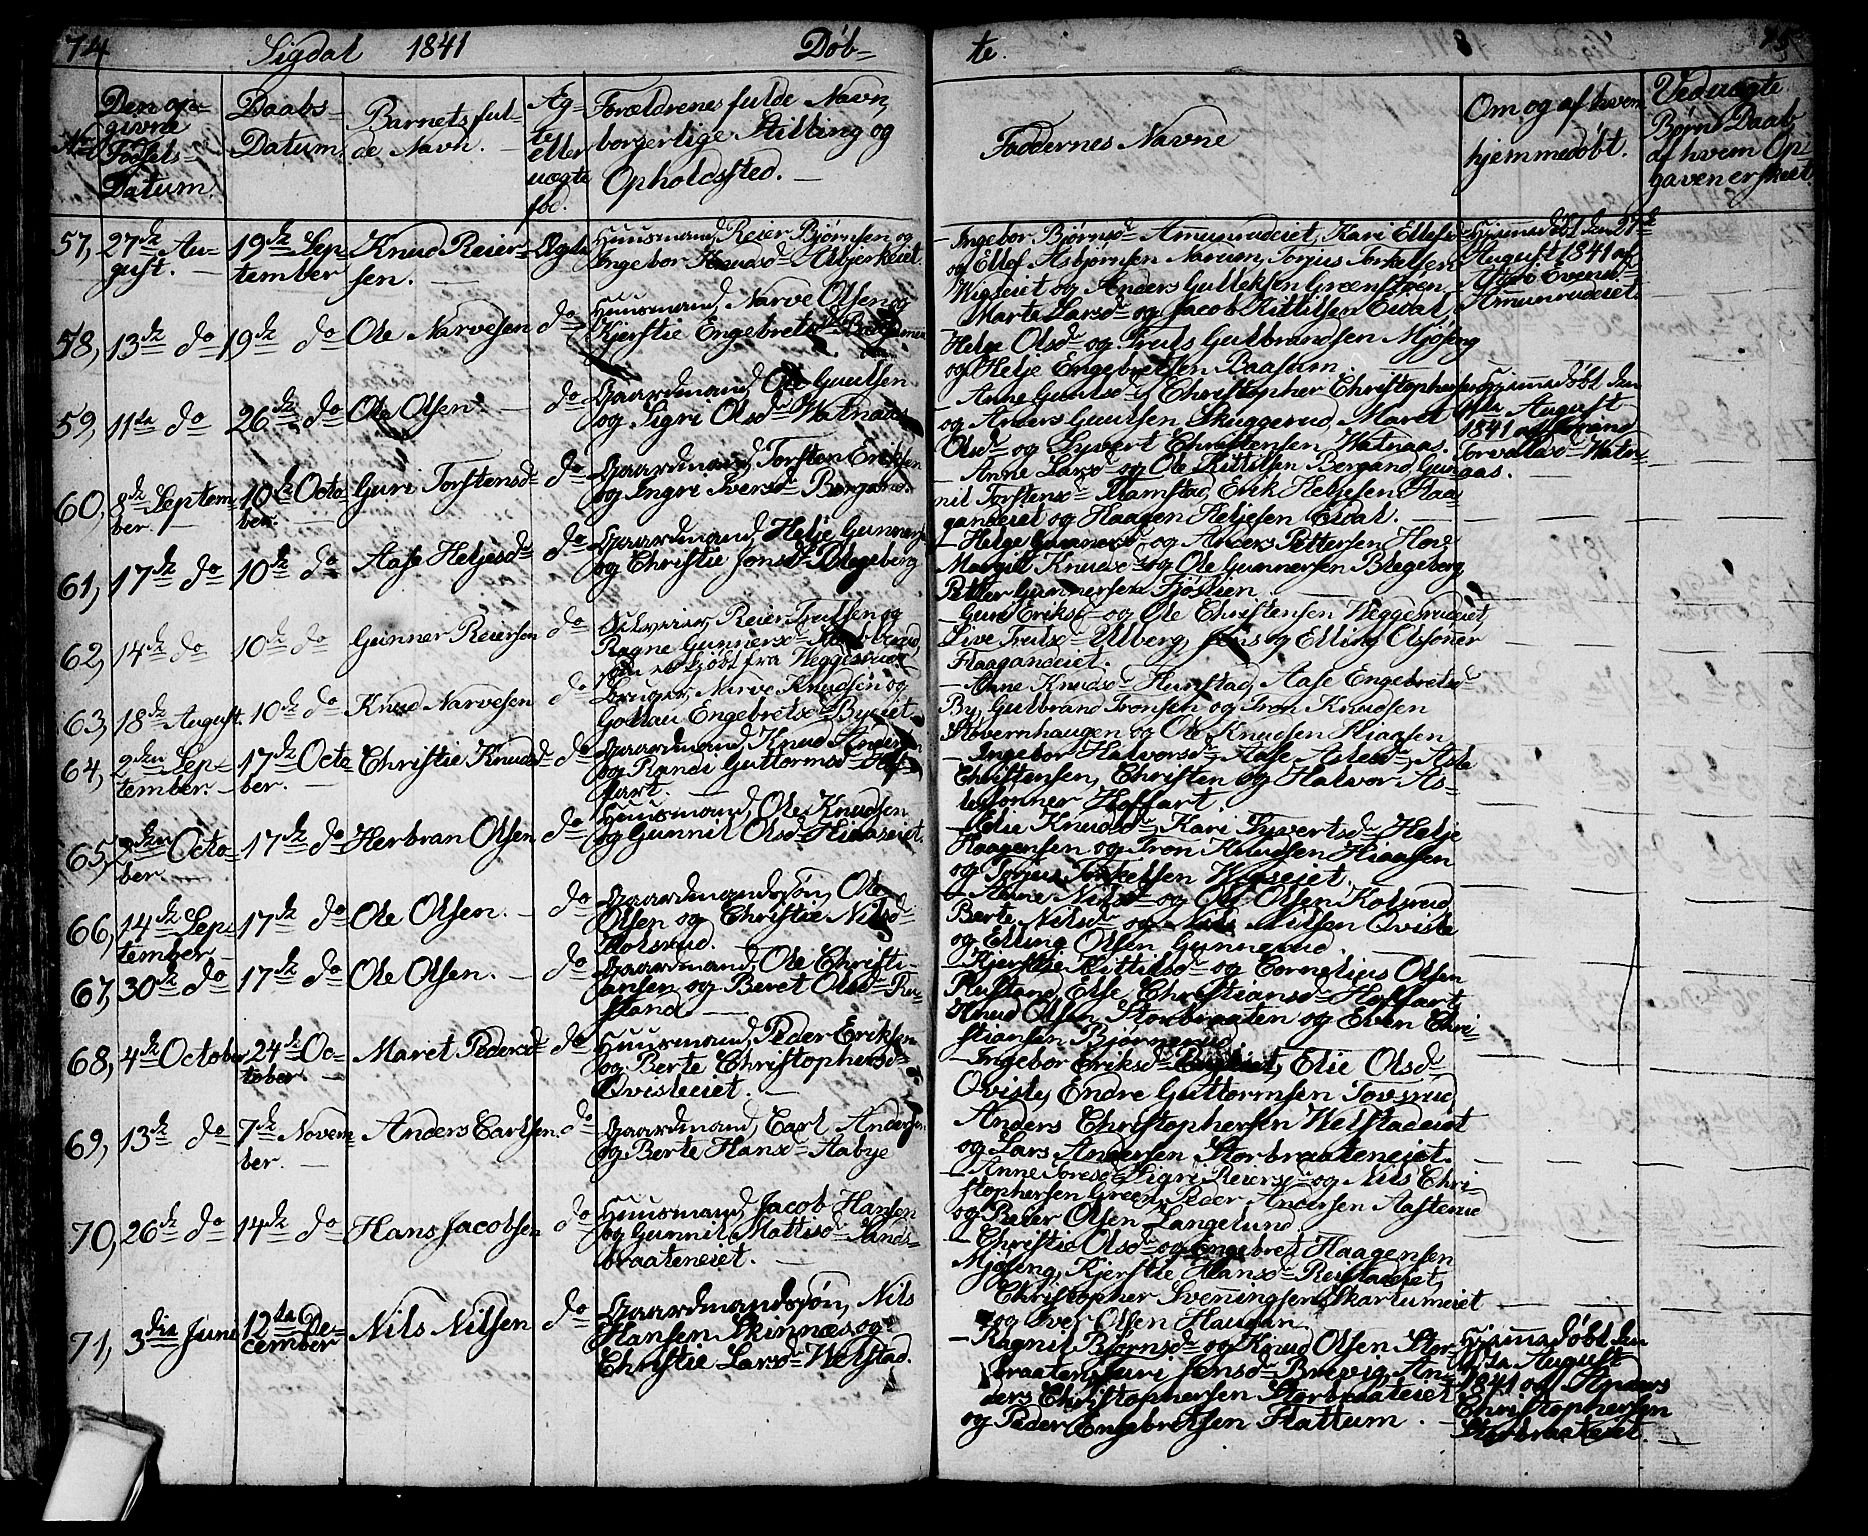 74 Sigdal 1841 Døb-
te. 75
No
Den op-
givne
Fødsels-
Datum
Daabs-
Datum
Barnets ful-
de Navn.
Æg-
te
eller
uægte
fød.
Forældrenes fulde Navn,
borgerlige Stilling og
Opholdssted.
Faddernes Navne
Om og af hvem
hjemmedøbt.
Ved uægte
Børns Daab
af hvem Opi
gaven er skeet.
57, 27de Au-
gust.
19de Sep-
tember
Knud Reier-
sen.
Ægte
Huusmand, Reier Bjørnsen og
Ingebor Knudsd.
Ingebor Bjørnsd. Amunrudeiet, Kari Ellefsd.
og Ellef Asbjørnsen Narum, Torjus Torkelsen
Wigseiet og Anders Gulleksen Grønstøen.
Hjemmedøbt den 27de
August 1841 af
Evensd.
Amunrudeiet
58, 13de do 19de do Ole Narvesen do
Huusmand, Narve Olsen og
Kjerstie Engebretsd.
Marta Larsd. og Jacob Kittilsen Eidal,
Helge Olsd. og Truls Gulbrandsen Mjøseng
og Helje Engebretsen Baasum.
59, 11te do 26de do Ole Olsen. do
Gaardmand, Ole Guulsen
og Sigri Olsd. Watnaas
Anne Guulsd. Christopher Christophersen
og Anders Guulsen Skuggerud, Maret
Olsd. og Syvert Christensen Watnaas.
Hjemmedøbt den
11te August
1841 af
Torvaldsd. Watn-
aas.
60, 8de Septem-
ber.
10de Octo-
ber.
Guri Torstensd. do
Gaardmand, Torsten Eriksen
og Ingri Iversd. Bergand.
Anne Larsd. og Ole Kittilsen Bergand, Gun-
nil Torstensd. Ramstad, Erik Heljesen Haa-
gandeiet og Haagen Heljesen Eidal.
61, 17de do 10de do Aase Heljesd. do
Gaardmand, Helje Gunnersen
og Christie Jonsd. Blegeberg
Helge Gunnersd. og Anders Pettersen Hove
Margit Knudsd. og Ole Gunnersen Blegeberg
Petter Gunnersen Fjøslien.
62, 14de do 10de do Gunner Reiersen do
Selveier, Reier Trulsen og
Ragne Gunnersd.
fra Weggesrud
Guri Eriksd. og Ole Christensen Weggesrudeiet,
Live Trulsd. Ulberg, Jens og Elling Olsøner
Haagandeiet.
63, 18de August. 10de do Knud Narvesen do
Bruger, Narve Knudsen og
Gollau Engebretsd. Byeiet
Anne Knudsd. Hunstad, Aase Engebretsd.
By, Gulbrand Tronsen og Tron Knudsen
Skovernhaugen og Ole Knudsen Hiaasen
64, 2den Sep-
tember.
17de Octo-
ber.
Christie Knudsd. do
Gaardmand, Knud Andersen
og Randi Guttormsd. Hof-
fart.
Ingebor Halvorsd. Aase Aslesd. Asle
Christensen, Christen og Halvor As-
lesønner Hoffart.
65, 2den Octo-
ber.
17de do Herbran Olsen do
Huusmand, Ole Knudsen
og Gunnil Olsd. Hiaaseiet
Elie Knudsd. Kari Syvertsd. Helje
Haagensen og Tron Knudsen Hiaasen
og Torjus Torkelsen Wigseiet.
66, 14de Sep-
tember
17de do Ole Olsen. do
Gaardmandssøn, Ole
Olsen og Christie Nilsd.
Kolsrud.
Anne Nilsd. og Ole Olsen Kolsrud,
Berte Nilsd. og Nils Nilsen Qviste
og Elling Olsen Gunnerud.
67, 30de do 17de do Ole Olsen. do
Gaardmand, Ole Christi-
ansen og Beret Olsd. Ru-
stand
Kjerstie Kittilsd. og Cornelius Olsen
Rustand, Else Christiansd. Hoffart,
Knud Olsen Storbraaten og Even Chri-
stiansen Bjørnerud.
68, 4de October 24de Oc-
tober.
Maret Pedersd. do
Huusmand, Peder Eriksen
og Berte Christophersd.
Qvisteeiet.
Ingebor Eriksd. Elie Olsd.
Qviste, Endre Guttormsen Tovsrud
Anders Christophersen Welstadeiet
og Lars Andersen Storbraateneiet.
69, 13de do 7de Novem-
ber.
Anders Carlsen. do
Gaardmand, Carl Andersen
og Berte Hansd. Aabye
Anne Toresd. Sigri Reiersd. og Nils Chri-
stophersen Green, Peder Andersen Aasterud
og Peder Olsen Langelund.
70, 26de do 14de do Hans Jacobsen do
Huusmand, Jacob Hansen
og Gunnil Mattisd. Sands-
braateneiet.
Christie Olsd. og Engebret Haagensen
Mjøseng, Kjerstie Hansd. Reistadeiet,
Christopher Sveningsen Skartumeiet
og Iver Olsen Haugan
71, 3die Juni 12te De-
cember
Nils Nilsen do
Gaardmandssøn, Nils
Hansen Skinnæs og
Christie Larsd. Welstad.
Ragnil Bjørnsd. og Knud Olsen Stor-
braaten, Guri Jensd. Brevig, An-
ders Christophersen Storbraateiet
og Peder Engebretsen Flattum.
Hjemmedøbt den
August
1841 af Anders
Christophersen
Storbraateiet.